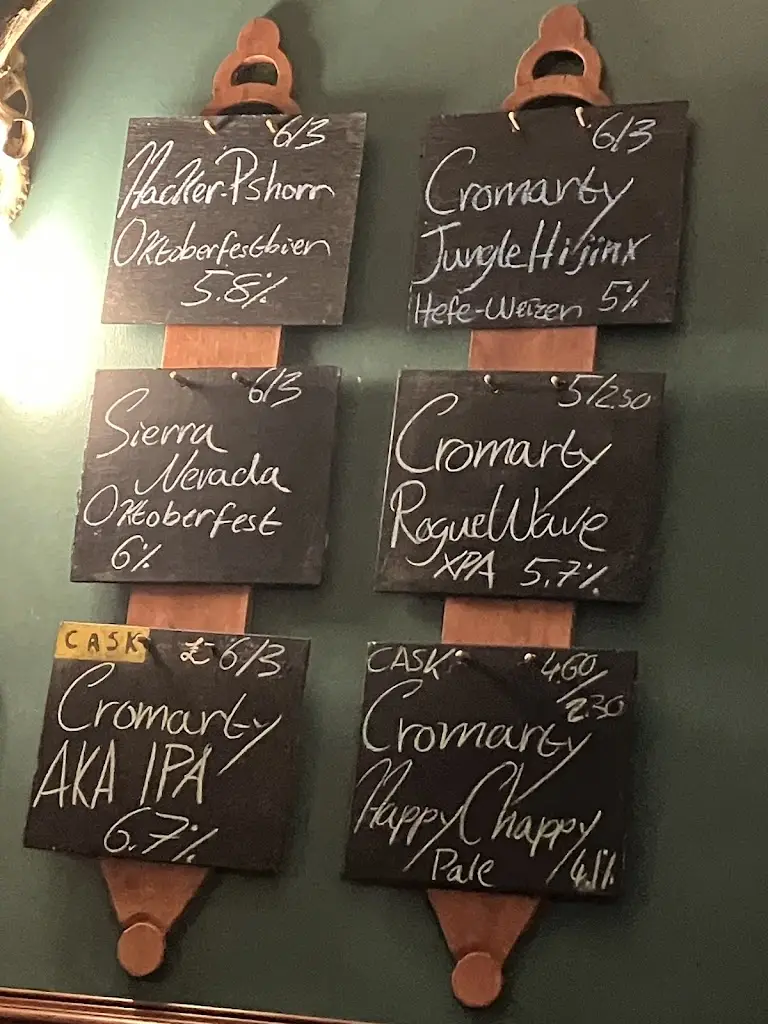 6/3
Hacker-Pshorn
Oktoberfestbier
5.8%
6/3
Sierra
Nevada
Oktoberfest
6%
CASK £6/3
Cromarty
AKA IPA
6.7%
6/3
Cromarty
Jungle Hijinx
Hefe-Weizen 5%
5/2.50
Cromarty
Rogue Wave
XPA 5.7%
CASK 4.60/2.30
Cromarty
Happy Chappy
Pale 4.1%